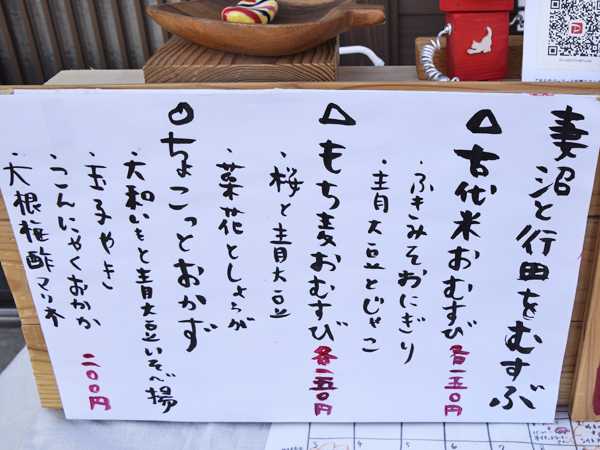 妻沼と行田をむすぶ
△古代米おむすび 各一五〇円
・ふきみそおにぎり
・青大豆とじゃこ
△もち麦おむすび 各一五〇円
・桜と青大豆
・菜花としょうが
○ちょこっとおかず
・大和いもと青大豆いそべ揚
・玉子やき
・こんにゃくおかか
・大根桜酢マリネ
二〇〇円
3
4
5
6
7